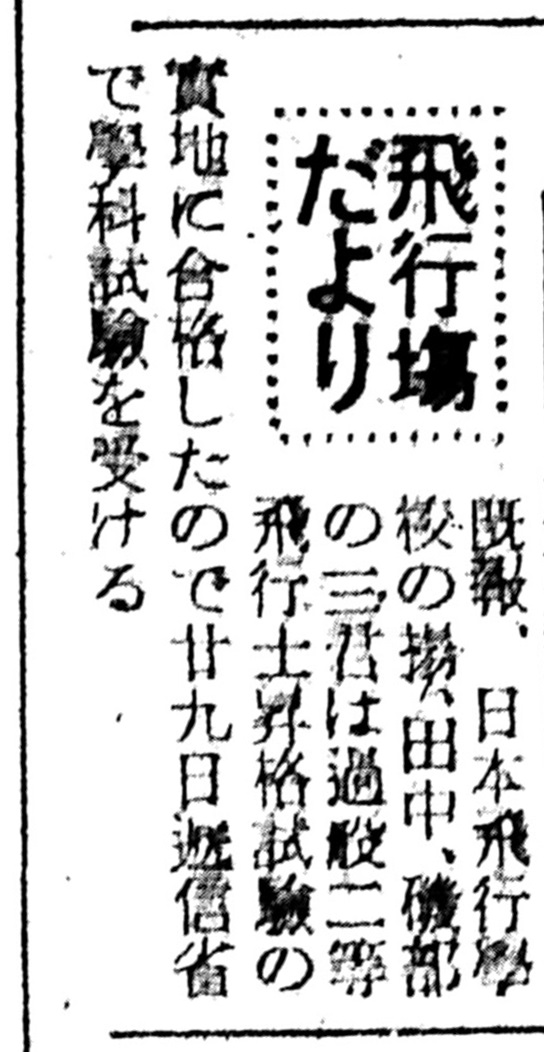 飛行場
だより
既報、日本飛行學
校の攅、田中、磯部
の三君は過般二等
飛行士昇格試驗の
實地に合格したので廿九日遞信省
で學科試驗を受ける